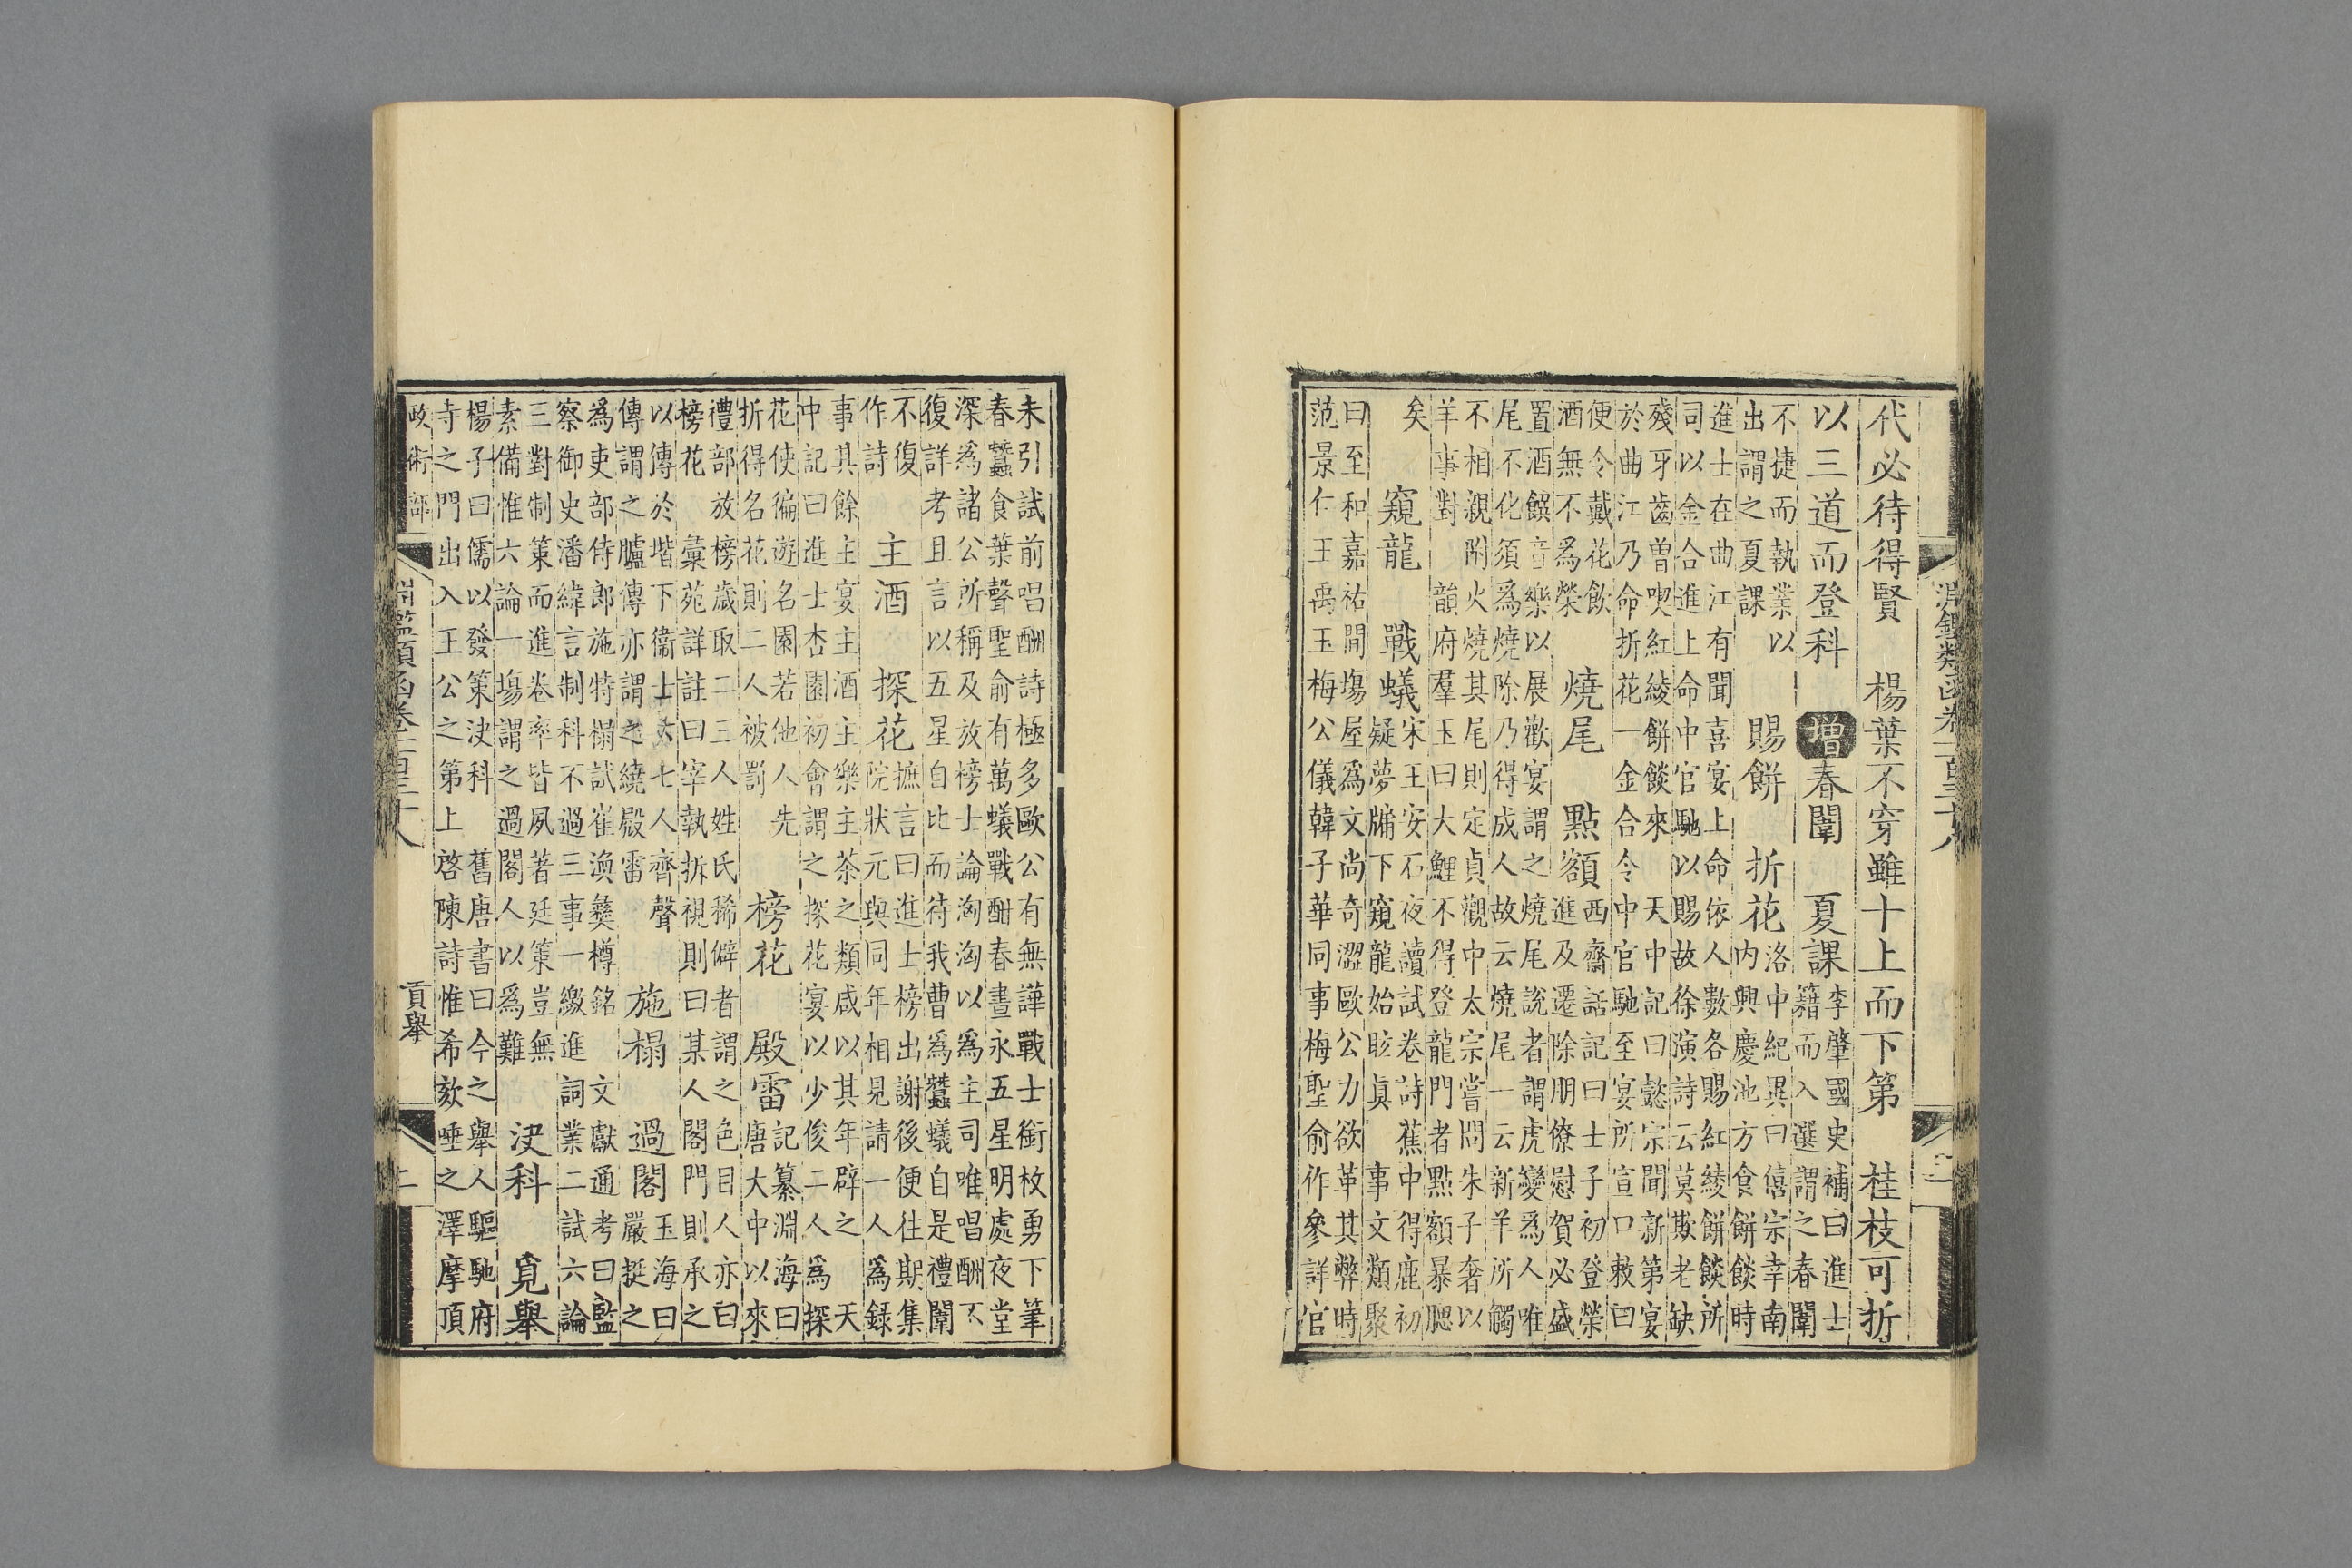 淵鑑類函卷一百三十八
代必待得賢 楊葉不穿雖十上而下第 桂枝可折
以三道而登科 增 春闈 夏課 李肇國史補曰進士
籍而入選謂之春闈
不捷而執業以
出謂之夏課 賜餅 折花 洛中紀異曰僖宗幸南
内興慶池方食餅餤時
進士在曲江有聞喜宴上命依人數各賜紅綾餅餤所
司以金合進上命中官馳以賜故徐演詩云莫欺老缺
殘牙齒曽喫紅綾餅餤來 天中記曰懿宗聞新第宴
於曲江乃命折花一金合令中官馳至宴所宣口敕曰
便令戴花飲
酒無不爲榮 燒尾 點額 西齋話記曰士子初登榮
進及遷除朋僚慰賀必盛
置酒饌音樂以展歡宴謂之燒尾說者謂虎變爲人唯
尾不化須爲燒除乃得成人故云燒尾一云新羊所觸
不相親附火燒其尾則定貞觀中太宗嘗問朱子奢以
羊事對 韻府羣玉曰大鯉不得登龍門者點額暴腮
矣 窺龍 戰蟻 宋王安石夜讀試卷詩 蕉中得鹿初
疑夢牖下窺龍始眩眞 事文類聚
曰至和嘉祐間塲屋爲文尚奇澀歐公力欲革其弊時
范景仁王禹玉梅公儀韓子華同事梅聖俞作參詳官
未引試前唱酬詩極多歐公有無譁戰士銜枚勇下筆
春蠶食葉聲聖俞有萬蟻戰酣春晝永五星明處夜堂
深爲諸公所稱及放榜士論洶洶以爲主司唯唱酬不
復詳考且言以五星自比而待我曹爲蠶蟻自是禮闈
不復
作詩 主酒 探花 摭言曰進士榜出謝後便往期集
院狀元與同年相見請一人爲録
事其餘主宴主酒主樂主茶之類咸以其年辟之 天
中記曰進士杏園初會謂之探花宴以少俊二人爲探
花使徧遊名園若他人先
折得名花則二人被罰 榜花 殿雷 記纂淵海曰
唐大中以來
禮部放榜歲取二三人姓氏稀僻者謂之色目人亦曰
榜花 彙苑詳註曰宰執拆視則曰某人閤門則承之
以傳於堦下衞士六七人齊聲
傳謂之臚傳亦謂之繞殿雷 施榻 過閣 玉海曰
嚴挺之
爲吏部侍郎施特榻試崔渙彝樽銘 文獻通考曰監
察御史潘緯言制科不過三事一繳進詞業二試六論
三對制策而進卷率皆夙著廷策豈無
素備惟六論一塲謂之過閣人以爲難 決科 覓舉
楊子曰儒以發策決科 舊唐書曰今之舉人驅馳府
寺之門出入王公之第上啓陳詩惟希欬唾之澤摩頂
政術部 淵鑑類函卷一百三十八 貢舉 二